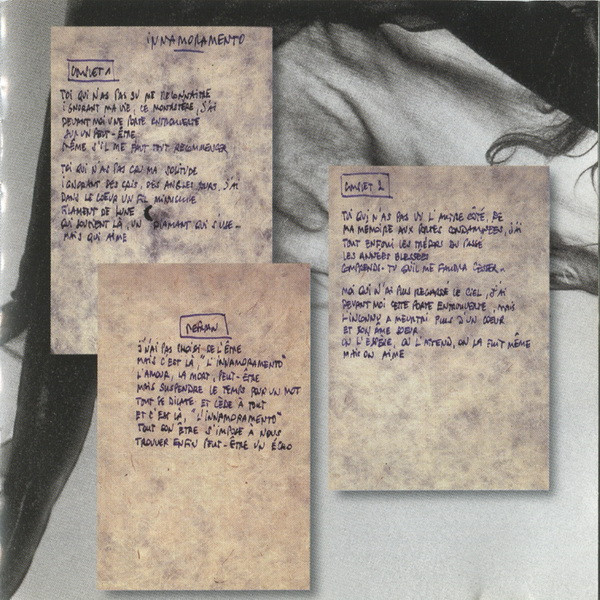 INNAMORAMENTO
COUPLET 1
TOI QUI N'AS PAS SU ME RECONNAITRE
IGNORANT MA VIE, CE MONASTÈRE, J'AI
DEVANT MOI UNE PORTE ENTROUVERTE
SUR UN PEUT-ÊTRE
MÊME S'IL ME FAUT TOUT RECOMMENCER
TOI QUI N'AS PAS CRU MA SOLITUDE
IGNORANT SES CRIS, SES ANGLES DURS, J'AI
DANS LE COEUR UN FIL MINUSCULE
FILAMENT DE LUNE
QUI SOUTIENT LÀ, UN DIAMANT QUI S'USE...
MAIS QUI AIME
REFRAIN
J'N'AI PAS CHOISI DE L'ÊTRE
MAIS C'EST LÀ, "L'INNAMORAMENTO"
L'AMOUR, LA MORT, PEUT-ÊTRE
MAIS SUSPENDRE LE TEMPS POUR UN MOT
TOUT SE DILATE ET CÈDE À TOUT
ET C'EST LÀ, "L'INNAMORAMENTO"
TOUT SON ÊTRE S'IMPOSE A NOUS
TROUVER ENFIN PEUT-ÊTRE UN ÉCHO
COUPLET 2
TOI QUI N'AS PAS VU L'AUTRE CÔTÉ, DE
MA MÉMOIRE AUX PORTES CONDAMNÉES, J'AI
TOUT ENFOUI LES TRÉSORS DU PASSÉ
LES ANNÉES BLESSÉES
COMPRENDS-TU QU'IL ME FAUDRA CESSER...
MOI QUI N'AI PLUS REGARDÉ LE CIEL, J'AI
DEVANT MOI CETTE PORTE ENTROUVERTE, MAIS
L'INCONNU A MEURTRI PLUS D'UN COEUR
ET SON ÂME SOEUR
ON L'ESPÈRE, ON L'ATTEND, ON LA FUIT MÊME
MAIS ON AIME